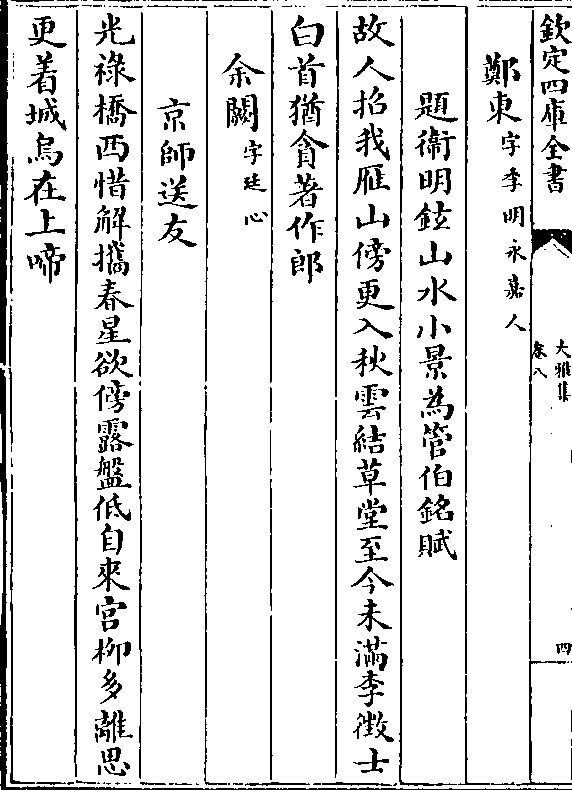 欽定四庫全書
大雅集
卷八
四
鄭東字季明永嘉人
題衛明鉉山水小景為管伯銘賦
故人招我雁山傍更入秋雲結草堂至今未滿李徵士
白首猶貪著作郎
余闕字廷心
京師送友
光祿橋西惜解攜春星欲傍露盤低自來宮柳多離思
更着城烏在上啼